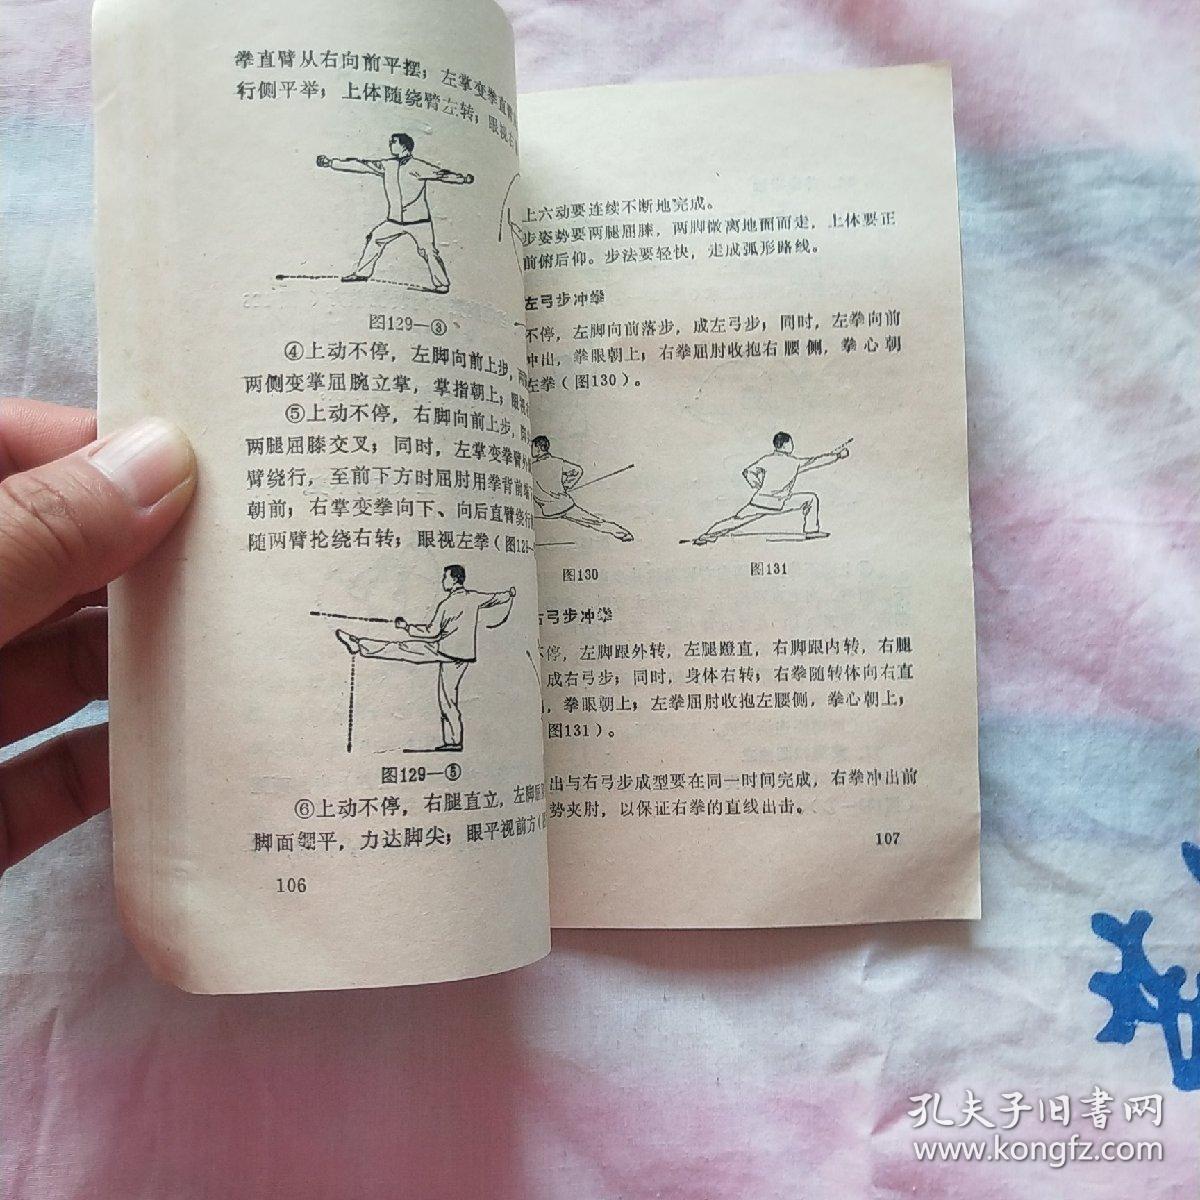 拳直臂从右向前平摆；左掌变拳直臂
行侧平举；上体随绕臂左转；眼视右
图129—③
④上动不停，左脚向前上步，两
两侧变掌屈腕立掌，掌指朝上；眼视
⑤上动不停，右脚向前上步，
两腿屈膝交叉；同时，左掌变拳臂外
臂绕行，至前下方时屈肘用拳背前
朝前；右掌变拳向下、向后直臂绕行
随两臂抡绕右转；眼视左拳(图12
图129—⑤
⑥上动不停，右腿直立，左脚
脚面绷平，力达脚尖；眼平视前方(
106
上六动要连续不断地完成。
步姿势要两腿屈膝，两脚微离地面而走，上体要正
前俯后仰。步法要轻快，走成弧形路线。
左弓步冲拳
不停，左脚向前落步，成左弓步；同时，左拳向前
冲出，拳眼朝上；右拳屈肘收抱右腰侧，拳心朝
左拳(图130)。
图130
图131
右弓步冲拳
不停，左脚跟外转，左腿蹬直，右脚跟内转，右腿
成右弓步；同时，身体右转；右拳随转体向右直
，拳眼朝上；左拳屈肘收抱左腰侧，拳心朝上；
图131)。
出与右弓步成型要在同一时间完成，右拳冲出前
势夹肘，以保证右拳的直线出击。
107
孔夫子旧书网
www.kongfz.com